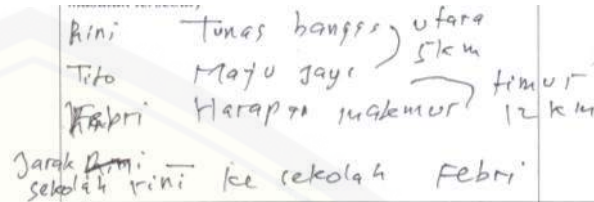 Rini Tunas bangsa utara
5km
Tito Maju Jaya timur
Febri Harapan makmur 12 km
Jarak
sekolah rini ke sekolah Febri